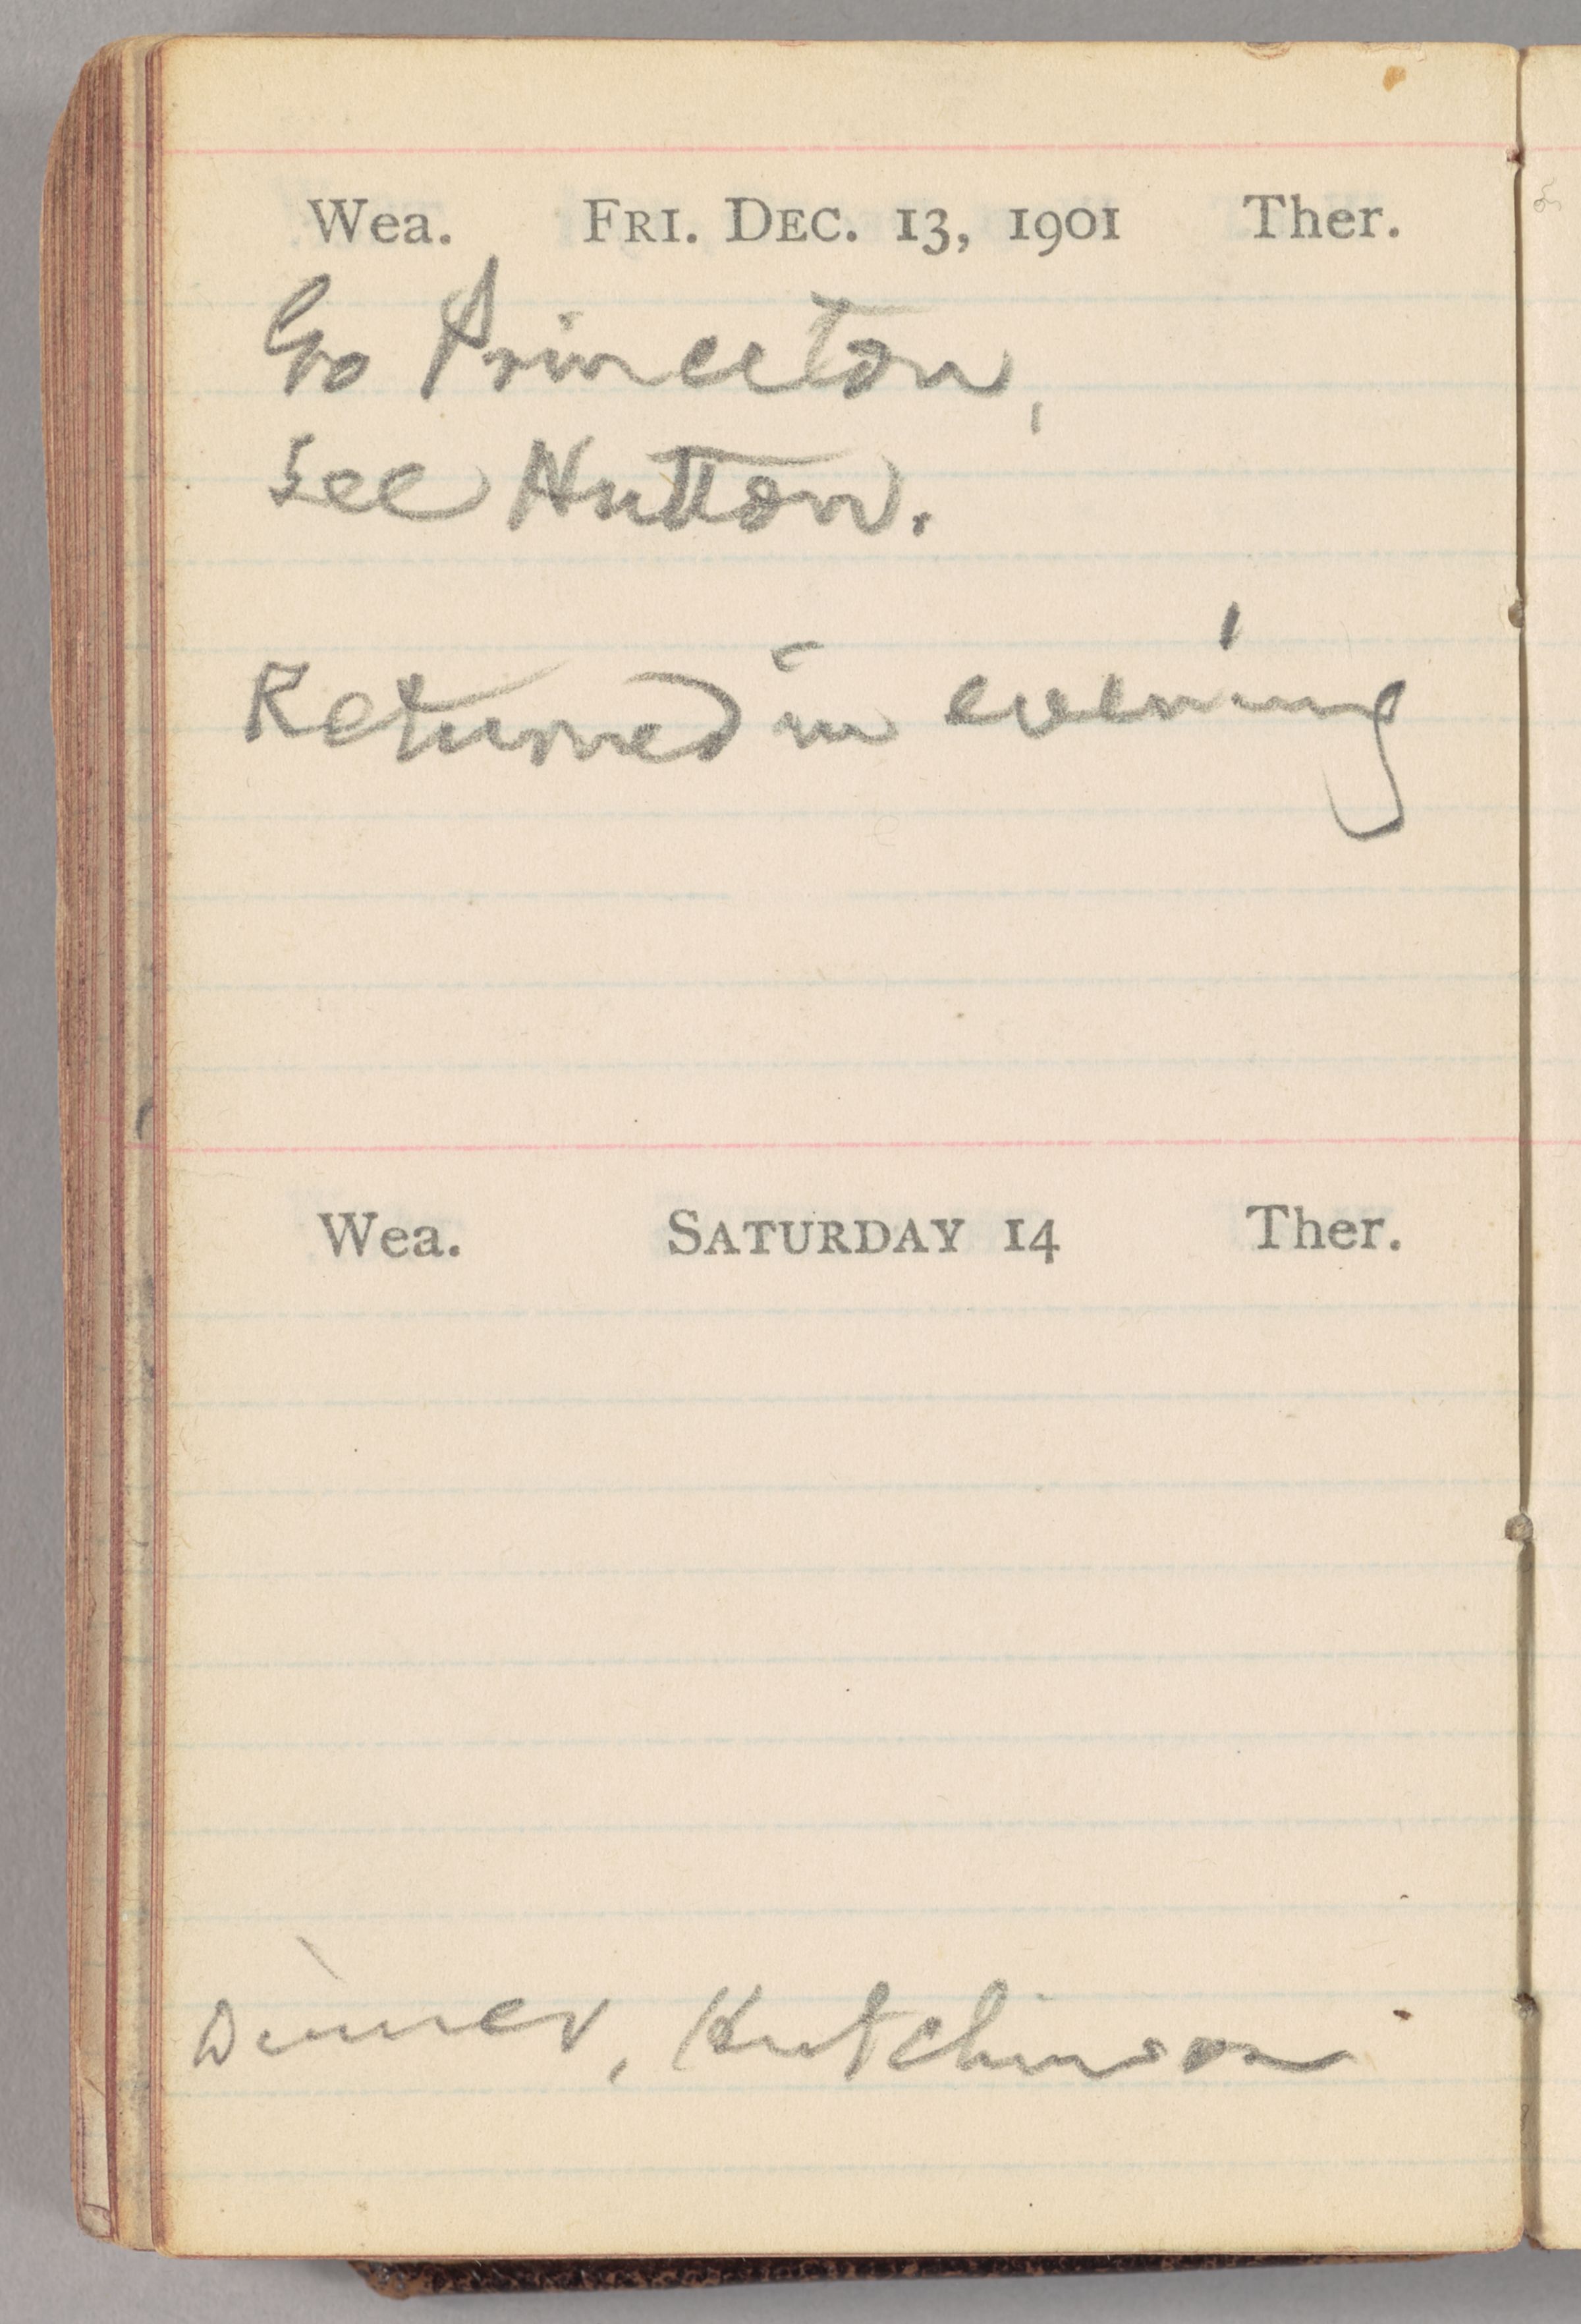 Wea. FRI. DEC. 13, 1901 Ther.
Go Princeton,
See Hutton.
Returned in evening
Wea. SATURDAY 14 Ther.
Dinner, Hutchinson